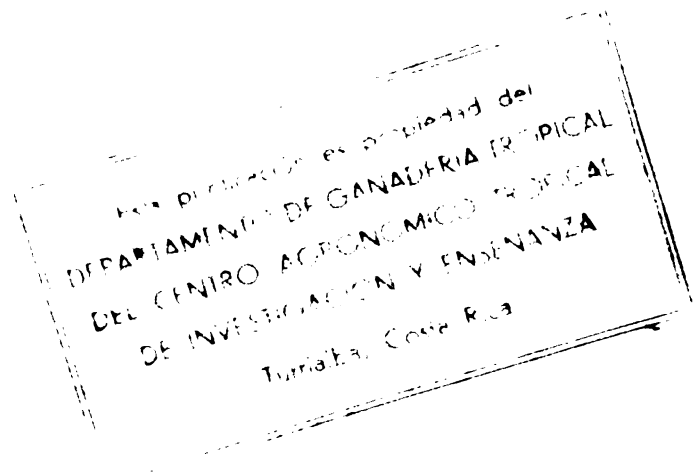 Esta publicación es propiedad del
DEPARTAMENTO DE GANADERIA TROPICAL
DEL CENTRO AGRONOMICO TROPICAL
DE INVESTIGACION Y ENSENANZA
Turrialba, Costa Rica